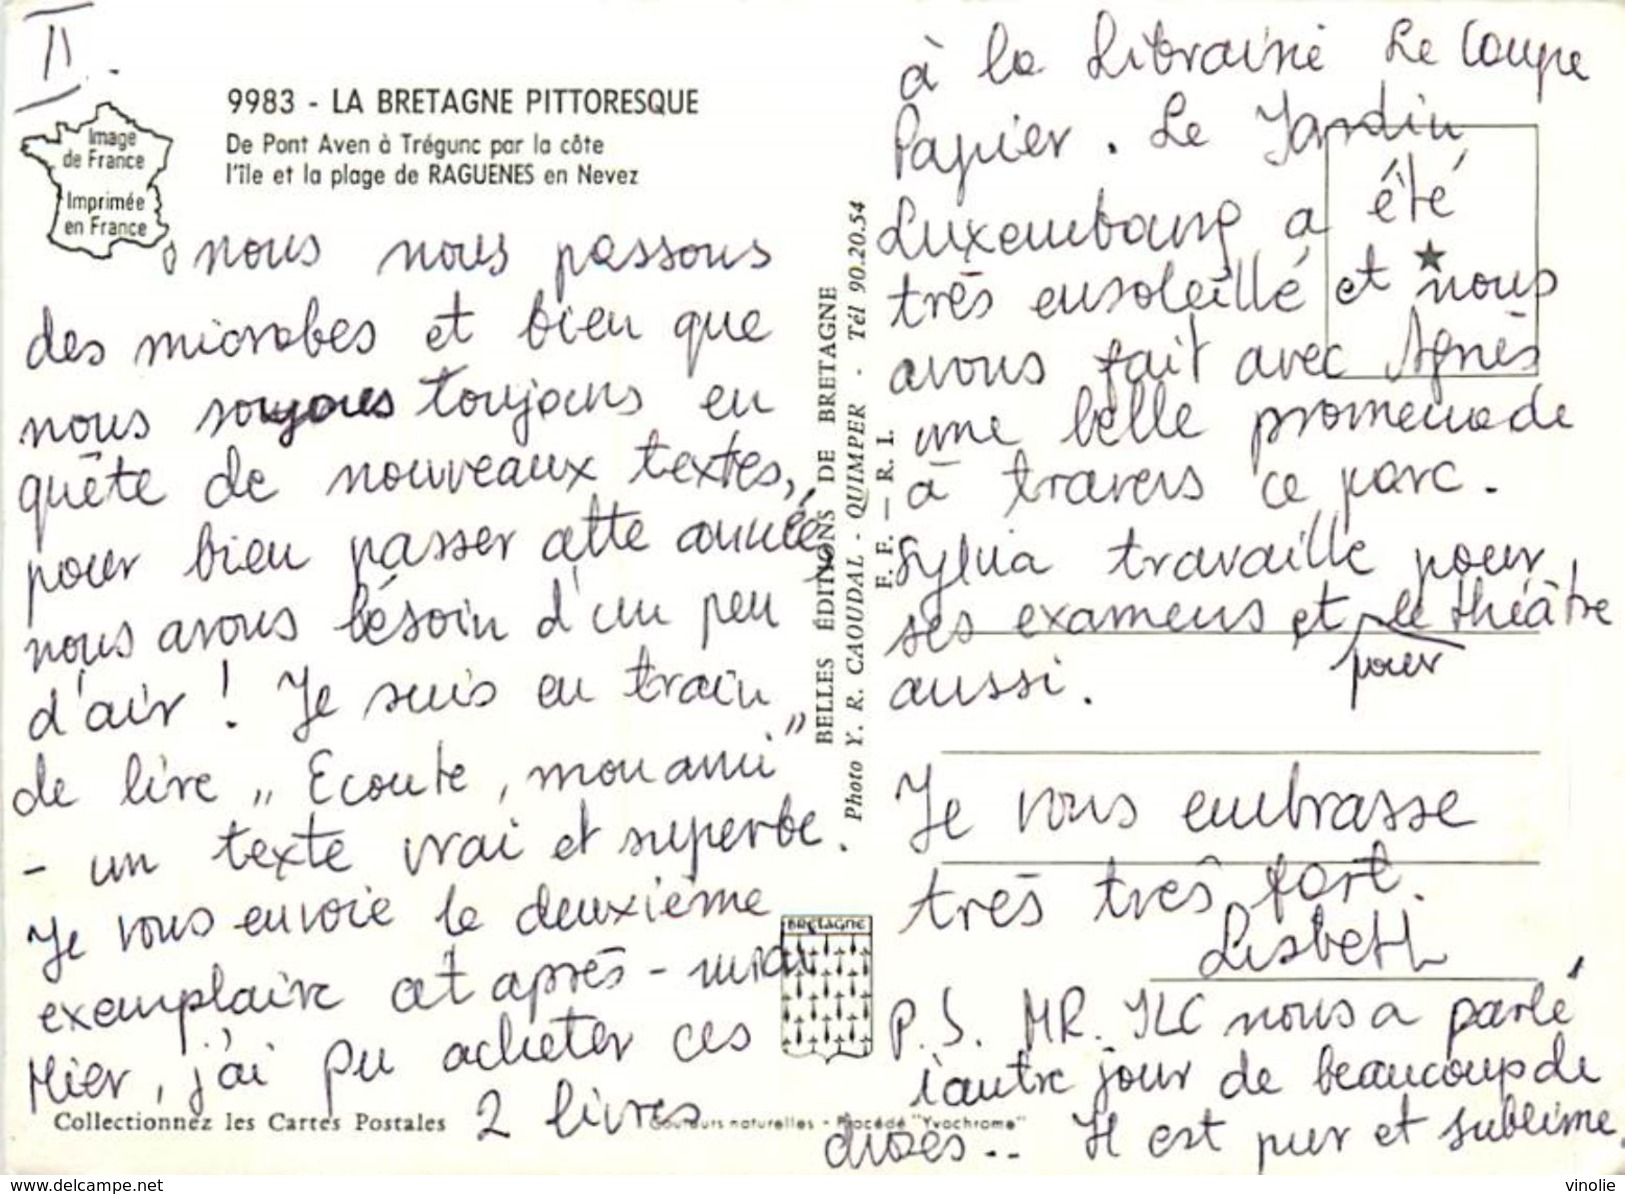 II.
Image
de France
Imprimée
en France
9983 - LA BRETAGNE PITTORESQUE
De Pont Aven à Trégunc par la côte
l'île et la plage de RAGUENES en Nevez
nous nous passons
des microbes et bien que
nous soyons toujours en
quête de nouveaux textes,
pour bien passer cette année,
nous avons bésoin d'un peu
d'air ! Je suis en train
de lire „ Ecoute, mon ami"
- un texte vrai et superbe.
Je vous envoie le deuxième
exemplaire cet après-midi
Hier, j'ai pu acheter ces
2 livres
Collectionnez les Cartes Postales
Couleurs naturelles - Procédé "Yvochrome"
BELLES ÉDITIONS DE BRETAGNE
Photo Y. R. CAOUDAL - QUIMPER . Tél 90.20.54
F. F. — R. I.
BRETAGNE
à la Librairie Le Coupe
Papier. Le Jardin
Luxembourg a été
très ensoleillé et nous
avons fait avec Agnès
une belle promenade
à travers ce parc.
Sylvia travaille pour
ses examens et le théâtre
pour
aussi.
Je vous embrasse
très très fort.
Lisbeth
P.S. MR. JLC nous a parlé
l'autre jour de beaucoup de
choses.. Il est pur et sublime.
www.delcampe.net
vinolie